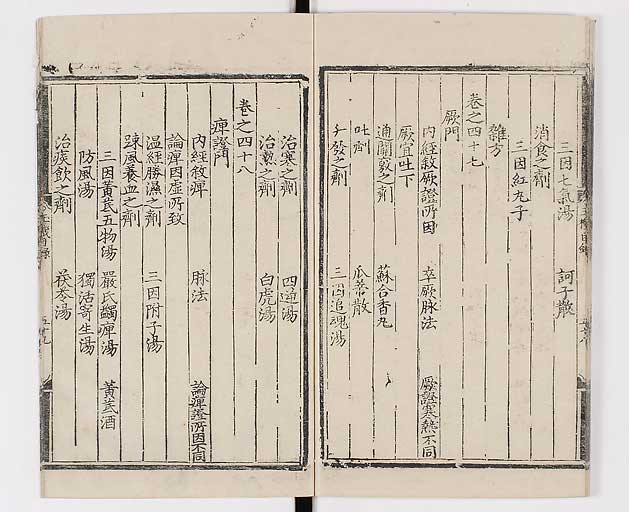 三因七氣湯 訶子散
消食之劑
三因紅丸子
雜方
卷之四十七
厥門
內經敘厥證所因 卒厥脉法 厥證寒熱不同
厥宜吐下
通關竅之劑 蘇合香丸
吐劑 瓜蒂散
汗發之劑 三因追魂湯
治寒之劑 四逆湯
治熱之劑 白虎湯
卷之四十八
痺證門
內經敘痺 脉法 論痺證所因不同
論痺因虛所致
温經勝濕之劑 三因附子湯
踈風養血之劑
三因黃芪五物湯 嚴氏蠲痺湯 黃芪酒
防風湯 獨活寄生湯
治痰飲之劑 茯苓湯